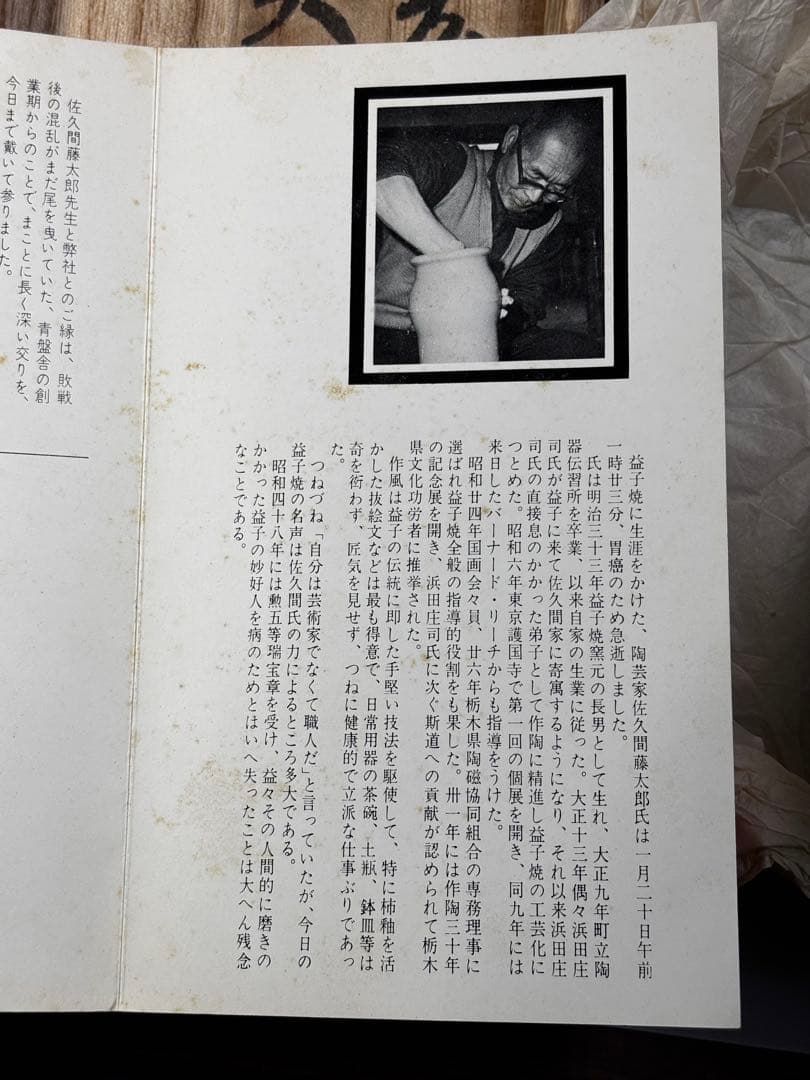 益子焼に生涯をかけた、陶芸家佐久間藤太郎氏は一月二十日午前
一時廿三分、胃癌のため急逝しました。
氏は明治三十三年益子焼窯元の長男として生れ、大正九年町立陶
器伝習所を卒業、以来自家の生業に従った。大正十三年偶々浜田庄
司氏が益子に来て佐久間家に寄寓するようになり、それ以来浜田庄
司氏の直接息のかかった弟子として作陶に精進し益子焼の工芸化に
つとめた。昭和六年東京護国寺で第一回の個展を開き、同九年には
来日したバーナード・リーチからも指導をうけた。
昭和廿四年国画会々員、廿六年栃木県陶磁協同組合の専務理事に
選ばれ益子焼全般の指導的役割をも果した。卅一年には作陶三十年
の記念展を開き、浜田庄司氏に次ぐ斯道への貢献が認められて栃木
県文化功労者に推挙された。
作風は益子の伝統に即した手堅い技法を駆使して、特に柿釉を活
かした抜絵文などは最も得意で、日常用器の茶碗、土瓶、鉢皿等は
奇を衒わず、匠気を見せず、つねに健康的で立派な仕事ぶりであっ
た。
つねづね「自分は芸術家でなくて職人だ」と言っていたが、今日の
益子焼の名声は佐久間氏の力によるところ多大である。
昭和四十八年には勲五等瑞宝章を受け、益々その人間的に磨きの
かかった益子の妙好人を病のためとはいへ失ったことは大へん残念
なことである。
佐久間藤太郎先生と弊社とのご縁は、敗戦
後の混乱がまだ尾を曳いていた、青盤舎の創
業期からのことで、まことに長く深い交りを、
今日まで戴いて参りました。